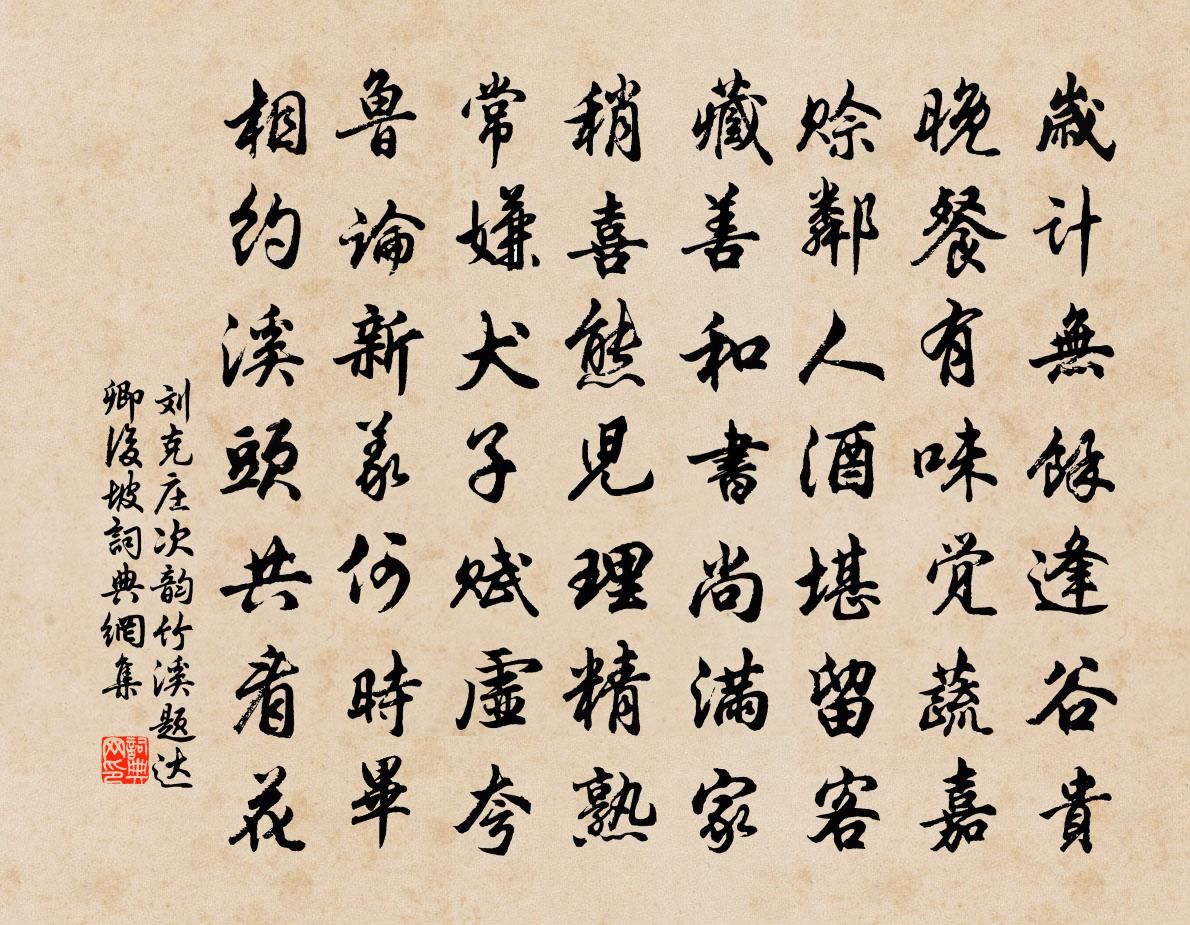 歲计無餘逢谷貴
晚餐有味覚蔬嘉
赊鄰人酒堪留客
藏善和書尚滿家
稍喜熊児理精熟
常嫌犬子赋虛夸
魯論新义何時畢
相约溪頭共看花
刘克庄次韵竹溪题达
卿後坡詞典網集
詞典网印